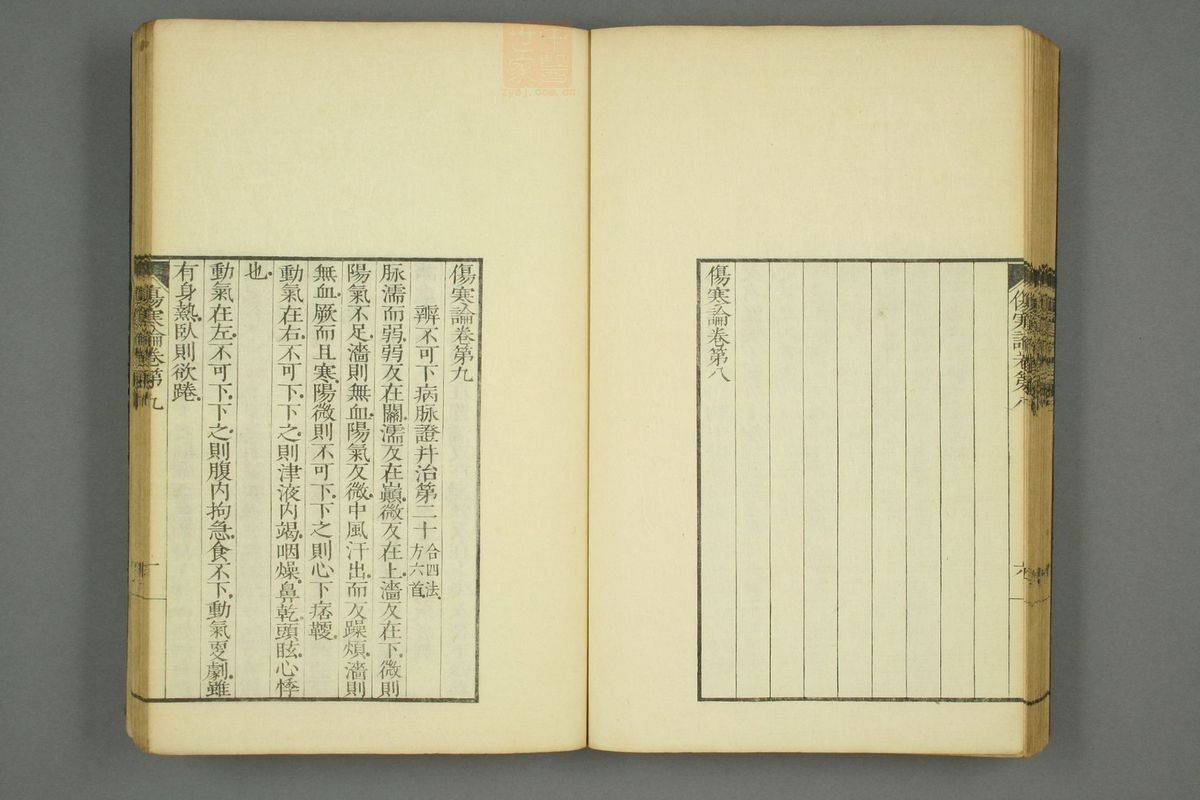 傷寒論卷第八
傷寒論卷第九
辨不可下病脉證幷治第二十 合四法、方六首、
脉濡而弱、弱反在關、濡反在巔、微反在上、濇反在下、微則
陽氣不足、濇則無血、陽氣反微、中風汗出、而反躁煩、濇則
無血、厥而且寒、陽微則不可下、下之則心下痞鞕。
動氣在右、不可下、下之則津液內竭、咽燥、鼻乾、頭眩、心悸
也。
動氣在左、不可下、下之則腹內拘急、食不下、動氣更劇、雖
有身熱、臥則欲踡。
傷寒論卷第九
一
世醫
zysj.com.cn